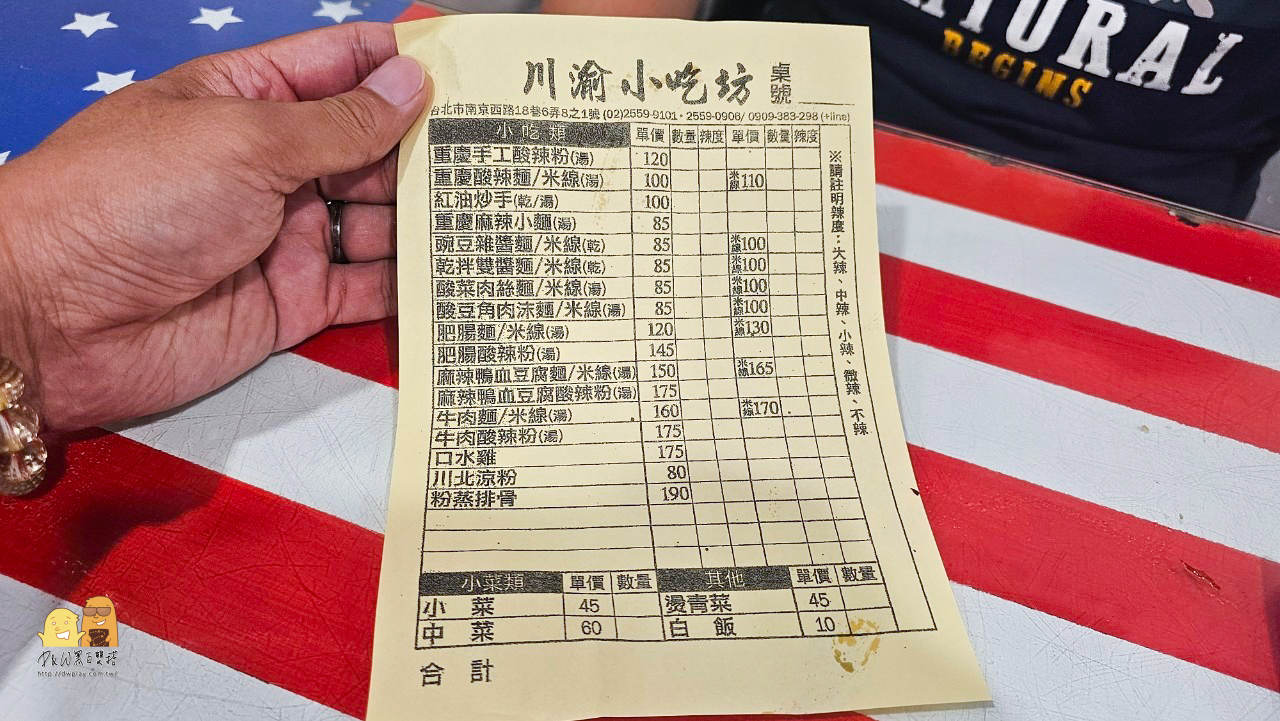 NATURAL
BEGINS
川渝小吃坊 桌號
台北市南京西路18巷6弄8之1號 (02)2559-9101・2559-0906/ 0909-383-298 (+line)
小吃類 單價 數量 辣度 單價 數量 辣度
重慶手工酸辣粉(湯) 120
重慶酸辣麵/米線(湯) 100 米線110
紅油炒手(乾/湯) 100
重慶麻辣小麵(湯) 85
豌豆雜醬麵/米線(乾) 85 米線100
乾拌雙醬麵/米線(乾) 85 米線100
酸菜肉絲麵/米線(湯) 85 米線100
酸豆角肉沫麵/米線(湯) 85 米線100
肥腸麵/米線(湯) 120 米線130
肥腸酸辣粉(湯) 145
麻辣鴨血豆腐麵/米線(湯) 150 米線165
麻辣鴨血豆腐酸辣粉(湯) 175
牛肉麵/米線(湯) 160 米線170
牛肉酸辣粉(湯) 175
口水雞 175
川北涼粉 80
粉蒸排骨 190
※請註明辣度：大辣、中辣、小辣、微辣、不辣
小菜類 單價 數量 其他 單價 數量
小 菜 45 燙青菜 45
中 菜 60 白 飯 10
合 計
http://dwplay.com.tw/